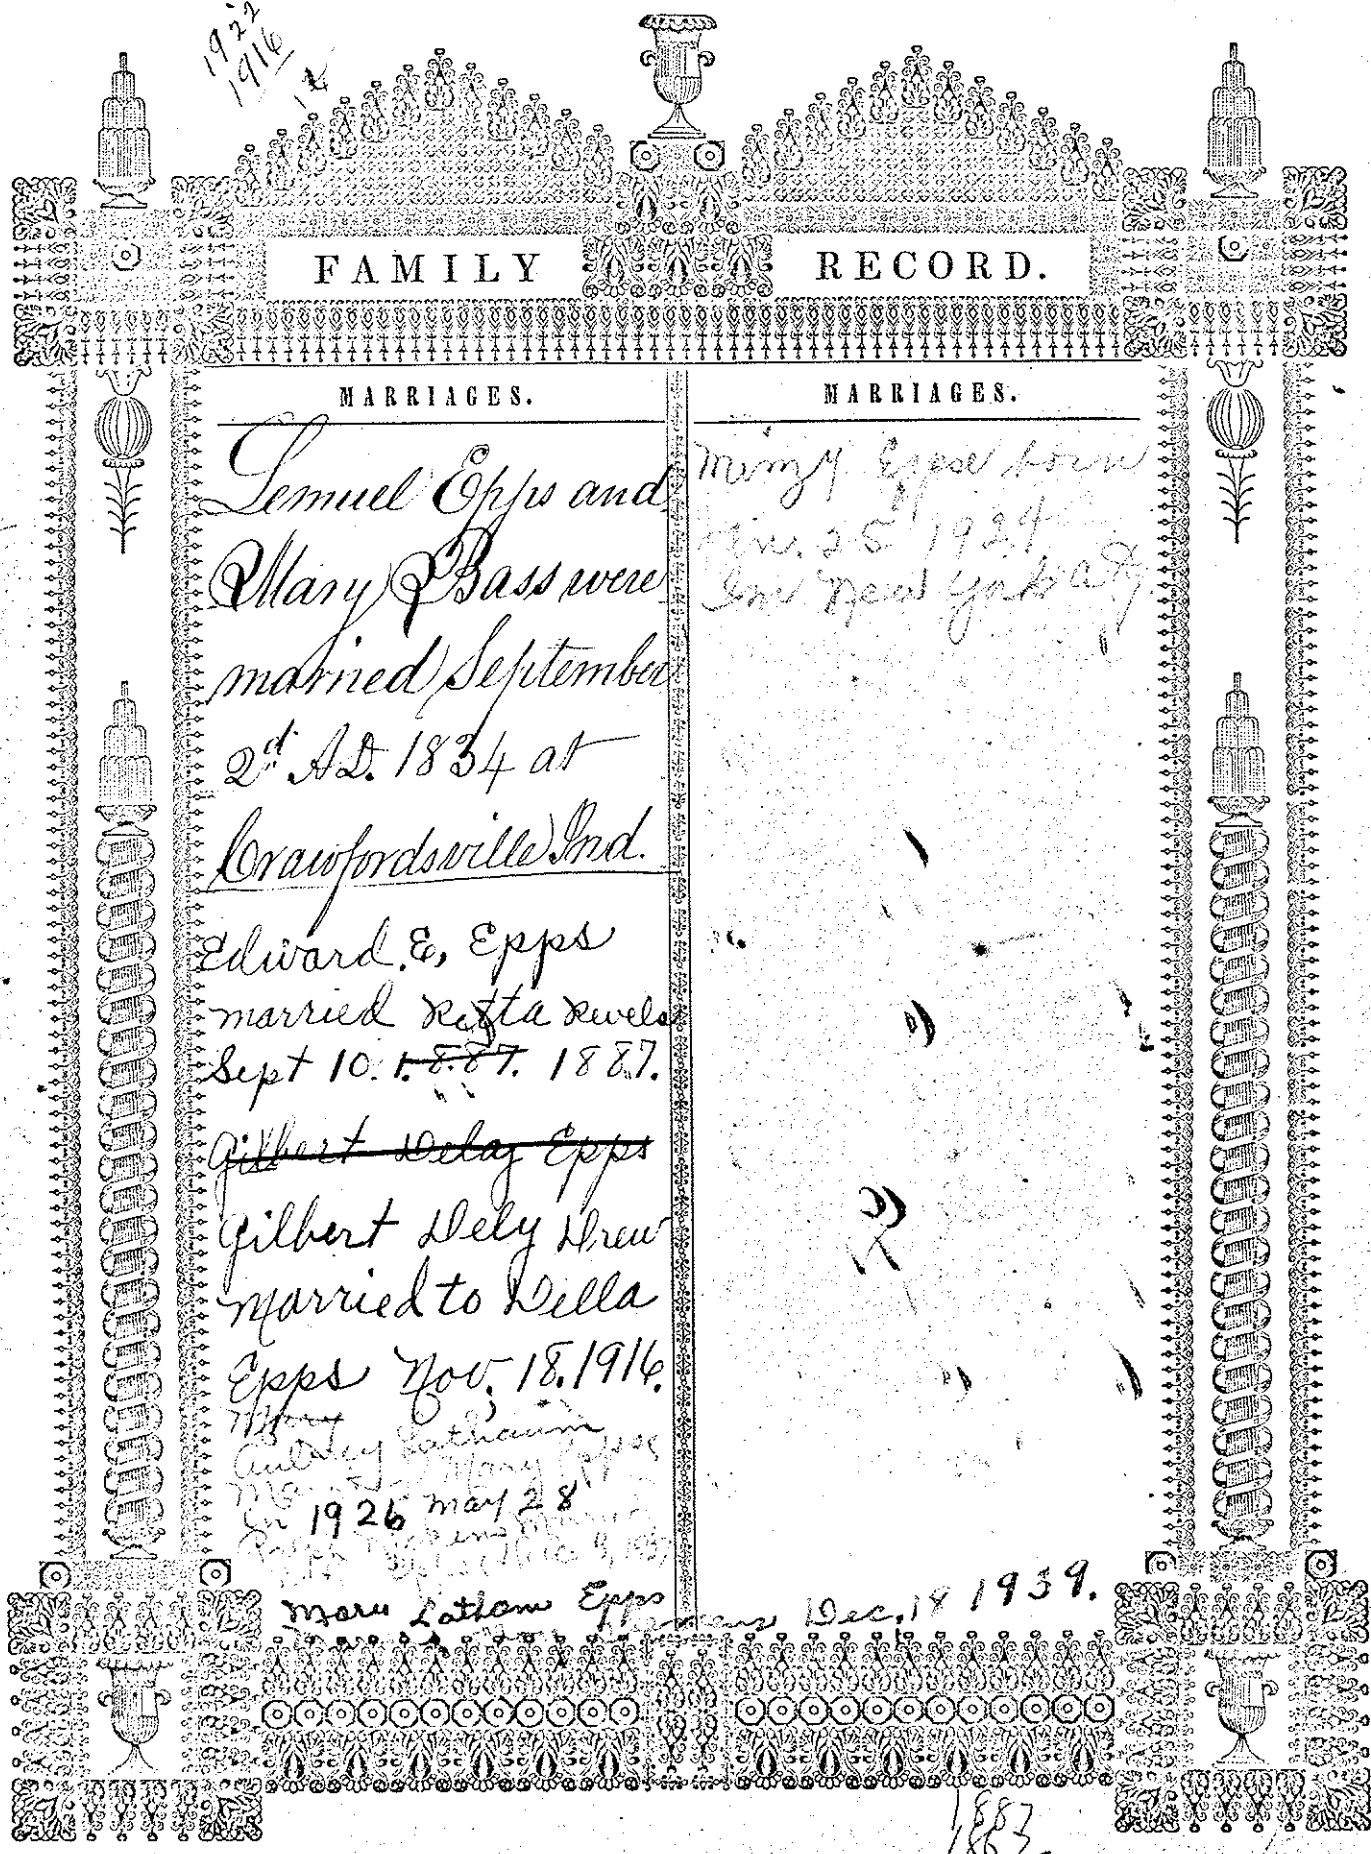 1922
1916
FAMILY RECORD.
MARRIAGES.
Lemuel Epps and
Mary Bass were
married September
2d. A.D. 1834 at
Crawfordsville Ind.
Edward. E, Epps
married Retta Revels
Sept 10. 1.8.87. 1887.
Gilbert Delay Epps
Gilbert Dely Drew
Married to Della
Epps Nov, 18. 1916.
Mary
Aubrey Lathaum
Mary Epps
In 1926 May 28
Mary Latham Epps Dec, 18 1939.
MARRIAGES.
born
25 1924
In New York City
1887
1863